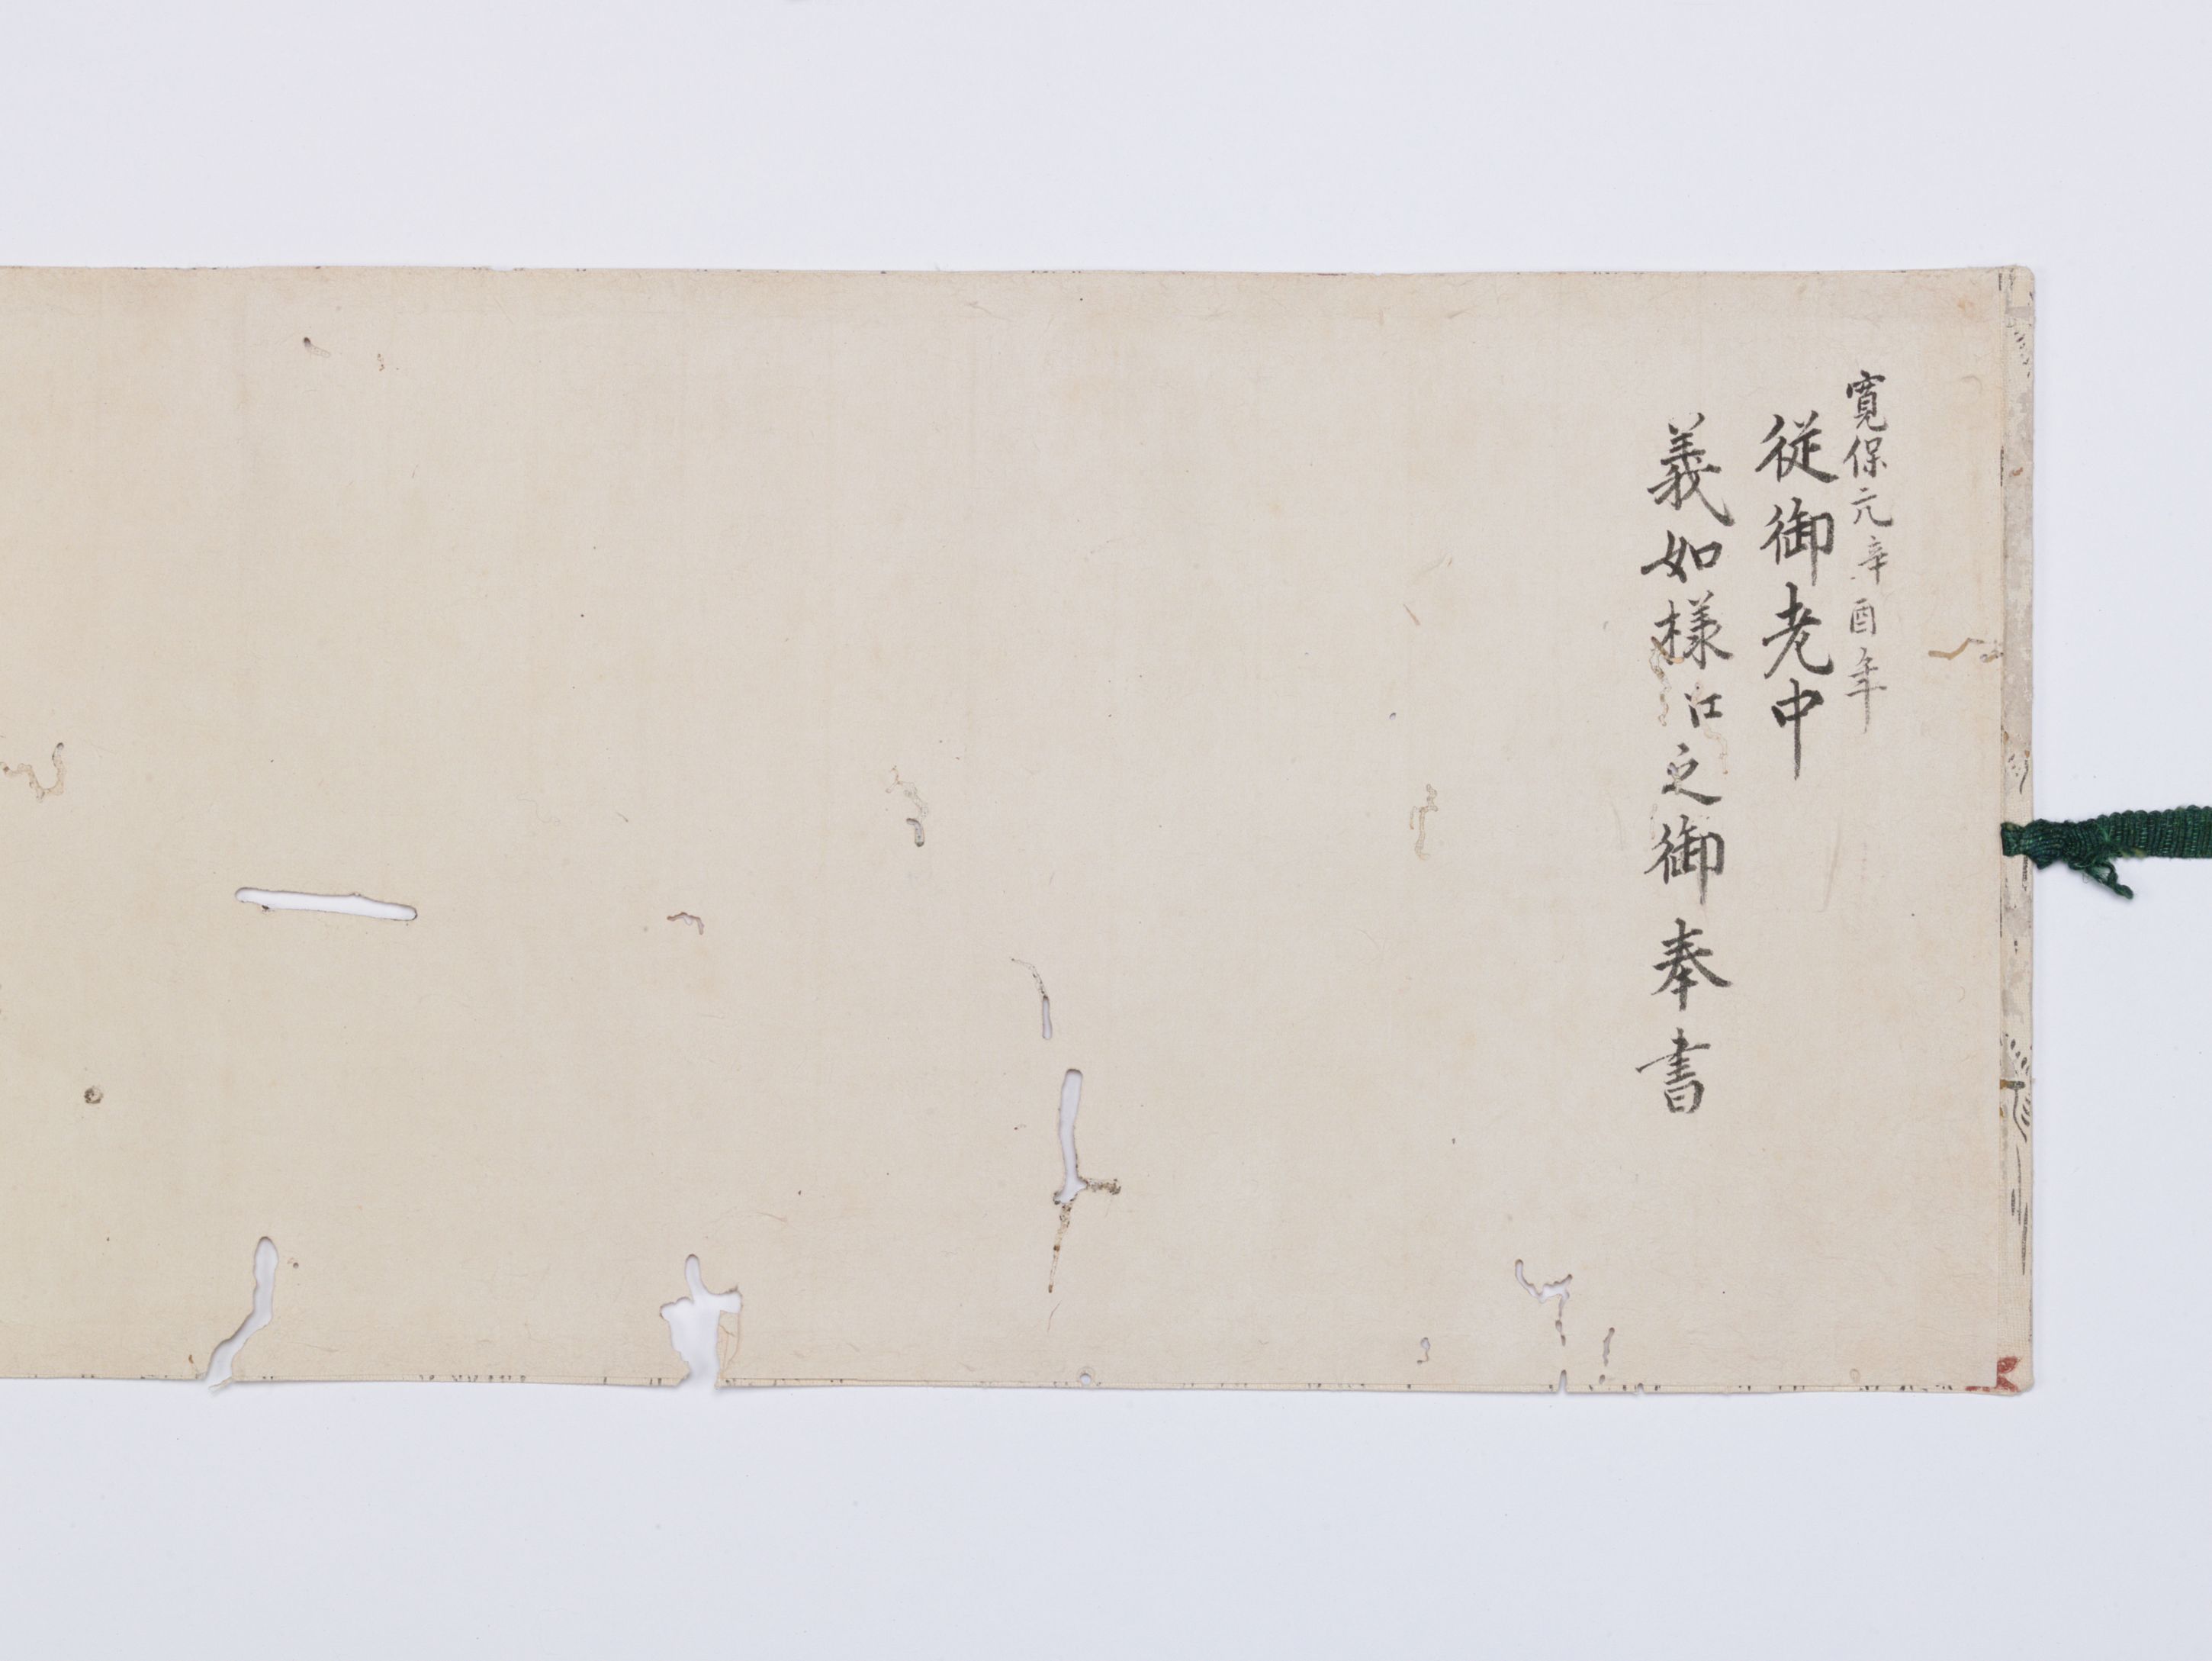 寛保元辛酉年
従御老中
義如様江之御奉書